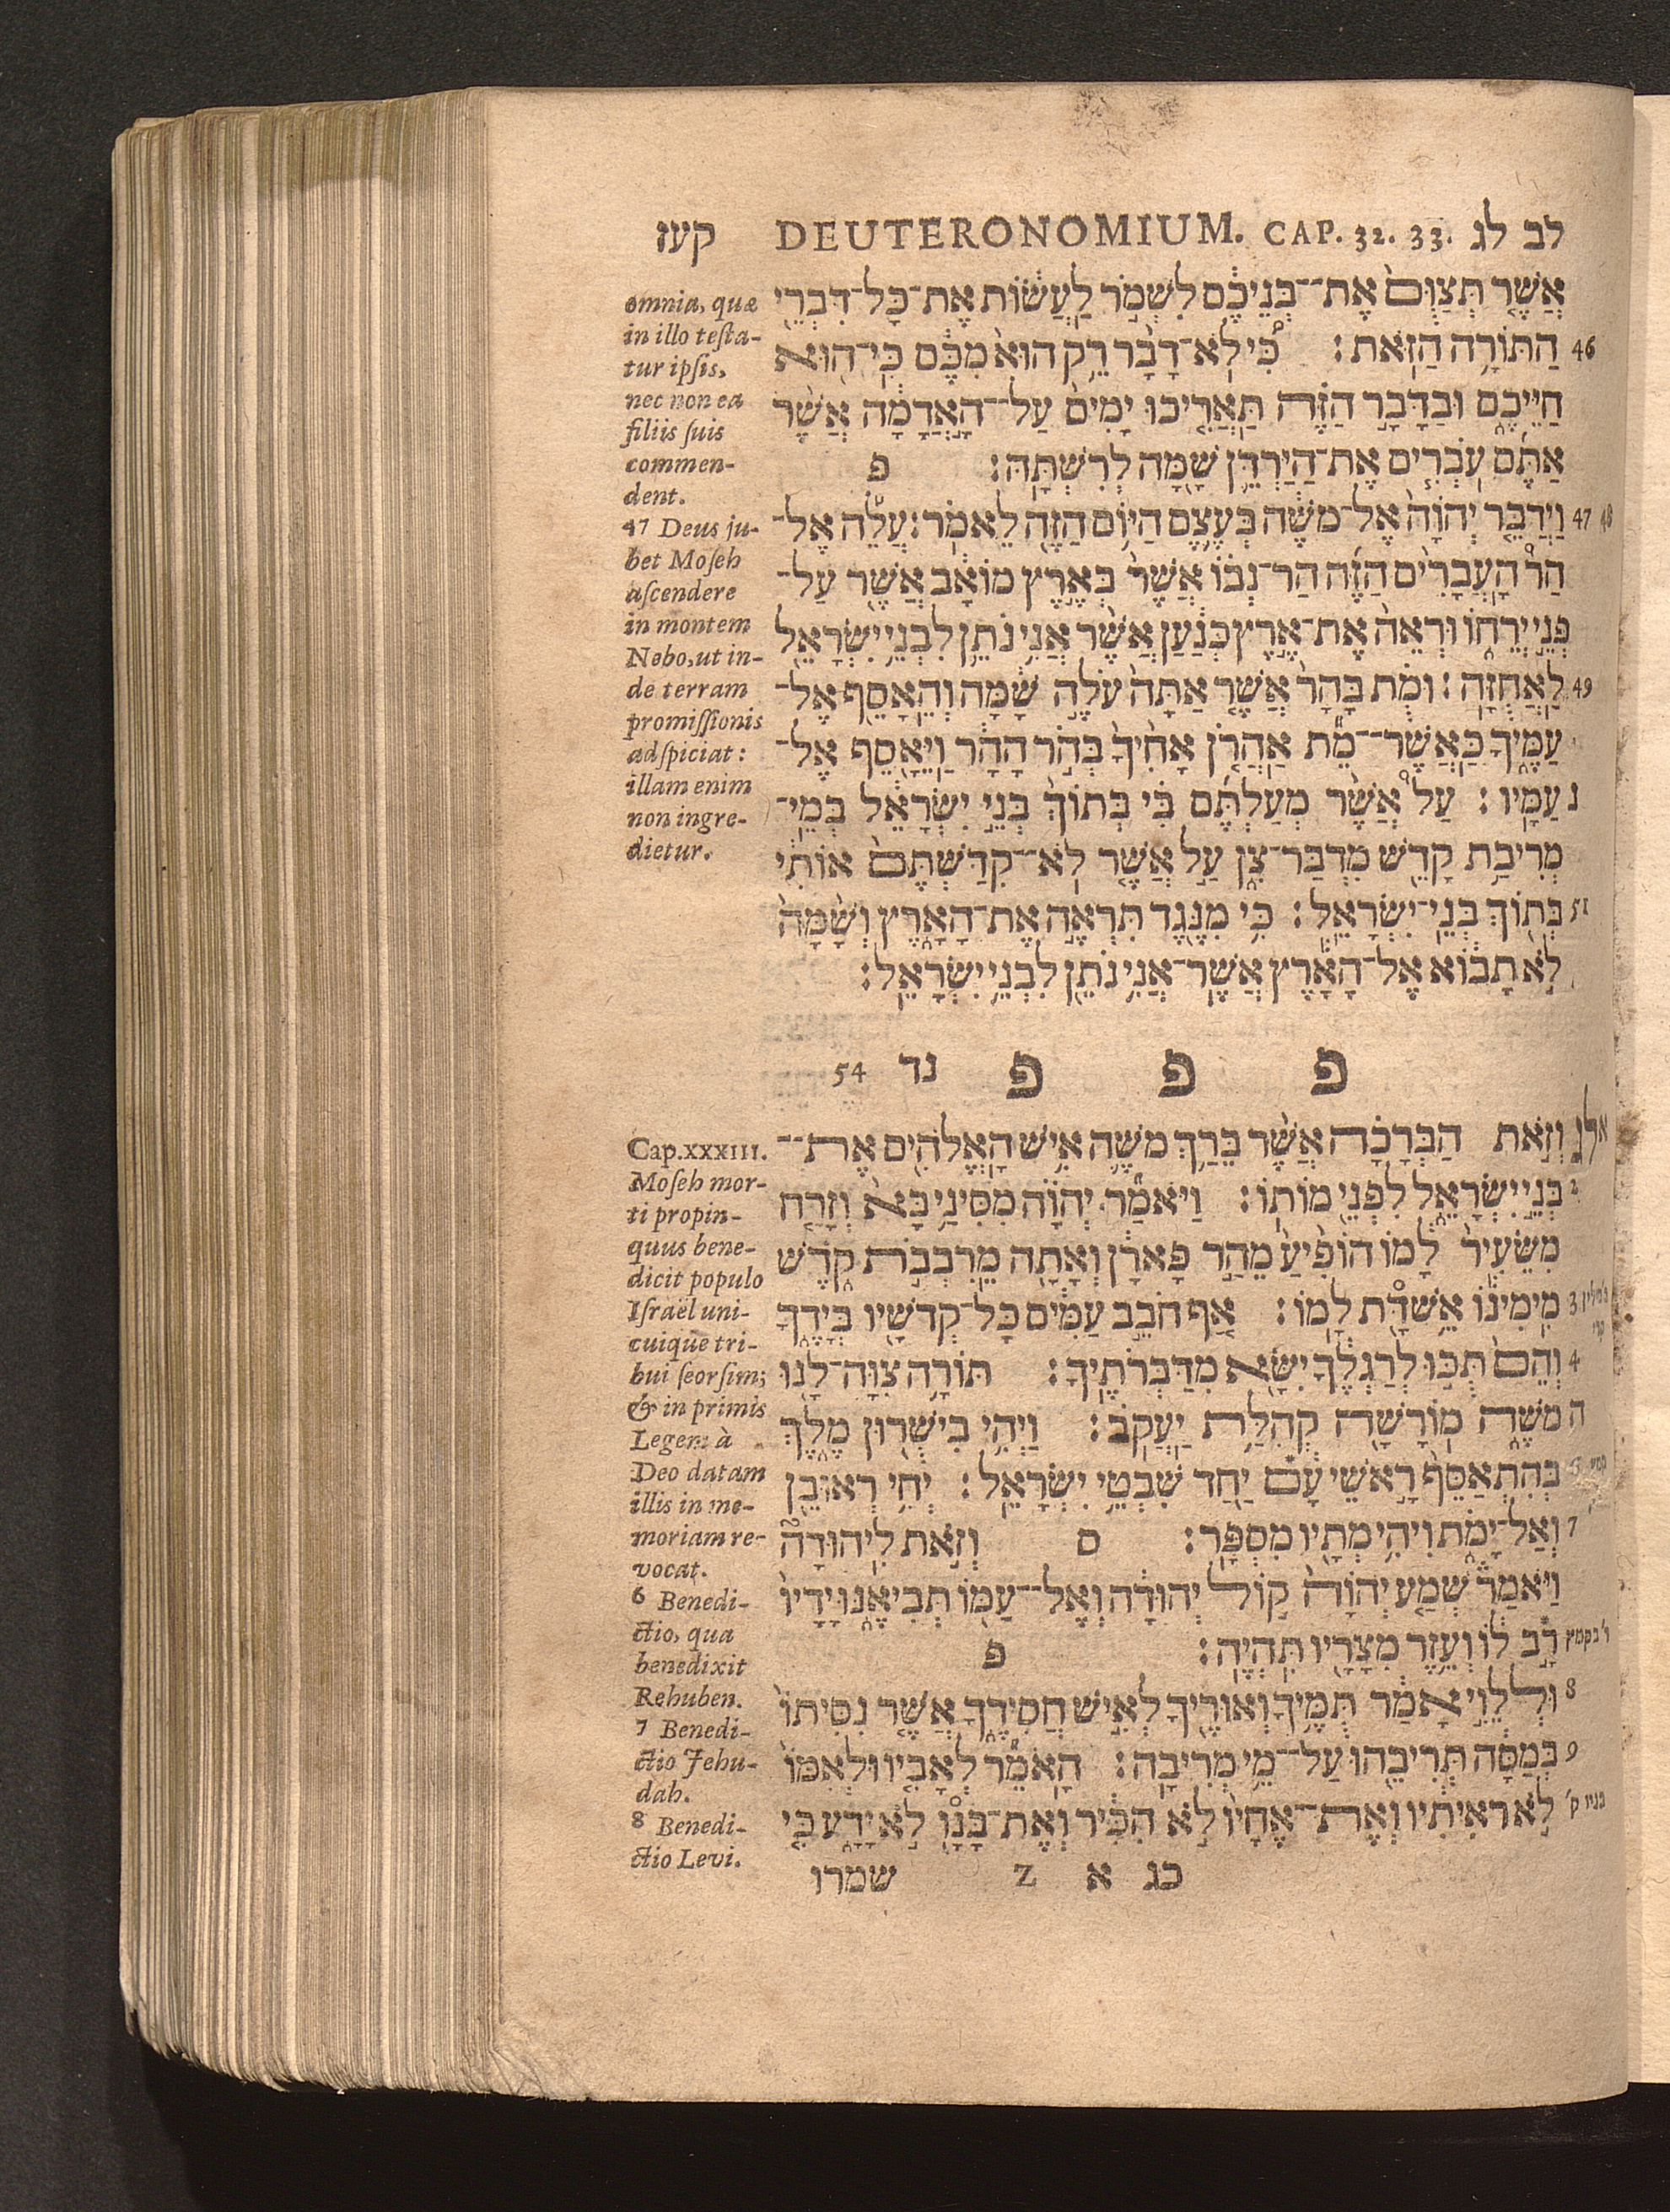 לב לג DEUTERONOMIUM. CAP. 32. 33. קעז
אֲשֶׁ֤ר תְּצַוֻּם֙ אֶת־־בְּנֵיכֶ֔ם לִשְׁמֹ֣ר לַעֲשׂ֔וֹת אֶת־כָּל־דִּבְרֵ֖י
46 הַתּוֹרָ֥ה הַזֹּֽאת׃ כִּ֠י לֹֽא־דָבָ֨ר רֵ֥ק הוּא֙ מִכֶּ֔ם כִּֽי־ה֖וּא
חַיֵּיכֶ֑ם וּבַדָּבָ֣ר הַזֶּ֗ה תַּֽאֲרִ֤יכוּ יָמִים֙ עַל־־הָ֣אֲדָמָ֔ה אֲשֶׁ֨ר
אַתֶּ֜ם עֹֽבְרִ֧ים אֶת־הַיַּרְדֵּ֛ן שָׁ֖מָּה לְרִשְׁתָּֽהּ׃ פ
47 48 וַיְדַבֵּ֤ר יְהוָֹה֙ אֶל־משֶׁ֔ה בְּעֶ֛צֶם הַיּ֥וֹם הַזֶּ֖ה לֵאמֹֽר׃ עֲלֵ֡ה אֶל־
הַר֩ הָעֲבָרִ֨ים הַזֶּ֜ה הַר־נְב֗וֹ אֲשֶׁר֙ בְּאֶ֣רֶץ מוֹאָ֔ב אֲשֶׁ֖ר עַל־
פְּנֵ֣י יְרֵח֑וֹ וּרְאֵה֙ אֶת־אֶ֣רֶץ כְּנַ֔עַן אֲשֶׁ֨ר אֲנִ֥י נֹתֵ֛ן לִבְנֵ֥י יִשְׂרָאֵ֖ל
49 לַאֲחֻזָּֽה׃ וּמֻ֗ת בָּהָר֙ אֲשֶׁ֤ר אַתָּה֙ עֹלֶ֣ה שָׁ֔מָּה וְהֵאָסֵ֖ף אֶל־
עַמֶּ֑יךָ כַּֽאֲשֶׁר־־מֵ֞ת אַהֲרֹ֤ן אָחִ֨יךָ֙ בְּהֹ֣ר הָהָ֔ר וַיֵּאָ֖סֶף אֶל־
נ עַמָּֽיו׃ עַל֩ אֲשֶׁ֨ר מְעַלְתֶּ֜ם בִּ֗י בְּתוֹךְ֙ בְּנֵ֣י יִשְׂרָאֵ֔ל בְּמֵֽי־
מְרִיבַ֥ת קָדֵ֖שׁ מִדְבַּר־צִ֑ן עַ֣ל אֲשֶׁ֤ר לֹֽא־־קִדַּשְׁתֶּם֙ אוֹתִ֔י
51 בְּת֖וֹךְ בְּנֵ֥י־יִשְׂרָאֵֽל׃ כִּ֥י מִנֶּ֖גֶד תִּרְאֶ֣ה אֶת־הָאָ֑רֶץ וְשָׁ֨מָּה֙
לֹ֣א תָב֔וֹא אֶל־הָאָ֕רֶץ אֲשֶׁר־אֲנִ֥י נֹתֵ֖ן לִבְנֵ֥י יִשְׂרָאֵֽל׃
פ פ פ נד 54
א לג וְזֹ֣את הַבְּרָכָ֗ה אֲשֶׁ֨ר בֵּרַ֥ךְ משֶׁ֛ה אִ֥ישׁ הָאֱלֹהִ֖ים אֶת־־
2 בְּנֵ֣י יִשְׂרָאֵ֑ל לִפְנֵ֖י מוֹתֽוֹ׃ וַיֹּאמַ֗ר יְהוָֹ֞ה מִסִּינַ֥י בָּא֙ וְזָרַ֤ח
מִשֵּׂעִיר֙ לָ֔מוֹ הוֹפִ֨יעַ֙ מֵהַ֣ר פָּארָ֔ן וְאָתָ֖ה מֵרִבְבֹ֣ת קֹ֑דֶשׁ
3 מִֽימִינ֕וֹ אֵ֥שׁדָּ֖ת לָֽמוֹ׃ אַ֚ף חֹבֵ֣ב עַמִּ֔ים כָּל־קְדֹשָׁ֖יו בְּיָדֶ֑ךָ
4 וְהֵם֙ תֻּכּ֣וּ לְרַגְלֶ֔ךָ יִשָּׂ֖א מִדַּבְּרֹתֶֽיךָ׃ תּוֹרָ֥ה צִוָּה־לָ֖נוּ
ה משֶׁ֑ה מוֹרָשָׁ֖ה קְהִלַּ֥ת יַעֲקֹֽב׃ וַיְהִ֥י בִישֻׁר֖וּן מֶ֑לֶךְ
בְּהִתְאַסֵּף֙ רָ֣אשֵׁי עָ֔ם יַ֖חַד שִׁבְטֵ֥י יִשְׂרָאֵֽל׃ יְחִ֥י רְאוּבֵ֖ן
7 וְאַל־יָמֹ֑ת וִיהִ֥י מְתָ֖יו מִסְפָּֽר׃ ס וְזֹ֣את לִֽיהוּדָה֮
וַיֹּאמַר֒ שְׁמַ֤ע יְהוָֹה֙ ק֣וֹל יְהוּדָ֔ה וְאֶל־־עַמּ֖וֹ תְּבִיאֶ֑נּוּ יָדָיו֙
רָ֣ב ל֔וֹ וְעֵ֥זֶר מִצָּרָ֖יו תִּֽהְיֶֽה׃ פ
8 וּלְלֵוִ֣י אָמַ֔ר תֻּמֶּ֥יךָ וְאוּרֶ֖יךָ לְאִ֣ישׁ חֲסִידֶ֑ךָ אֲשֶׁ֤ר נִסִּיתוֹ֙
9 בְּמַסָּ֔ה תְּרִיבֵ֖הוּ עַל־־מֵ֥י מְרִיבָֽה׃ הָאֹמֵ֞ר לְאָבִ֤יו וּלְאִמּוֹ֙
לֹ֣א רְאִיתִ֔יו וְאֶת־־אֶחָיו֙ לֹ֣א הִכִּ֔יר וְאֶת־בָּנָ֖ו לֹ֣א יָדָ֑ע כִּ֤י
בניו ק׳
כג א Z שמרו
omnia, quæ
in illo testa-
tur ipsis,
nec non ea
filiis suis
commen-
dent.
47 Deus ju-
bet Moseh
ascendere
in montem
Nebo, ut in-
de terram
promissionis
adspiciat:
illam enim
non ingre-
dietur.
Cap. XXXIII.
Moseh mor-
ti propin-
quus bene-
dicit populo
Israël uni-
cuique tri-
bui seorsim;
& in primis
Legem à
Deo datam
illis in me-
moriam re-
vocat.
6 Benedi-
ctio, qua
benedixit
Rehuben.
7 Benedi-
ctio Jehu-
dah.
8 Benedi-
ctio Levi.